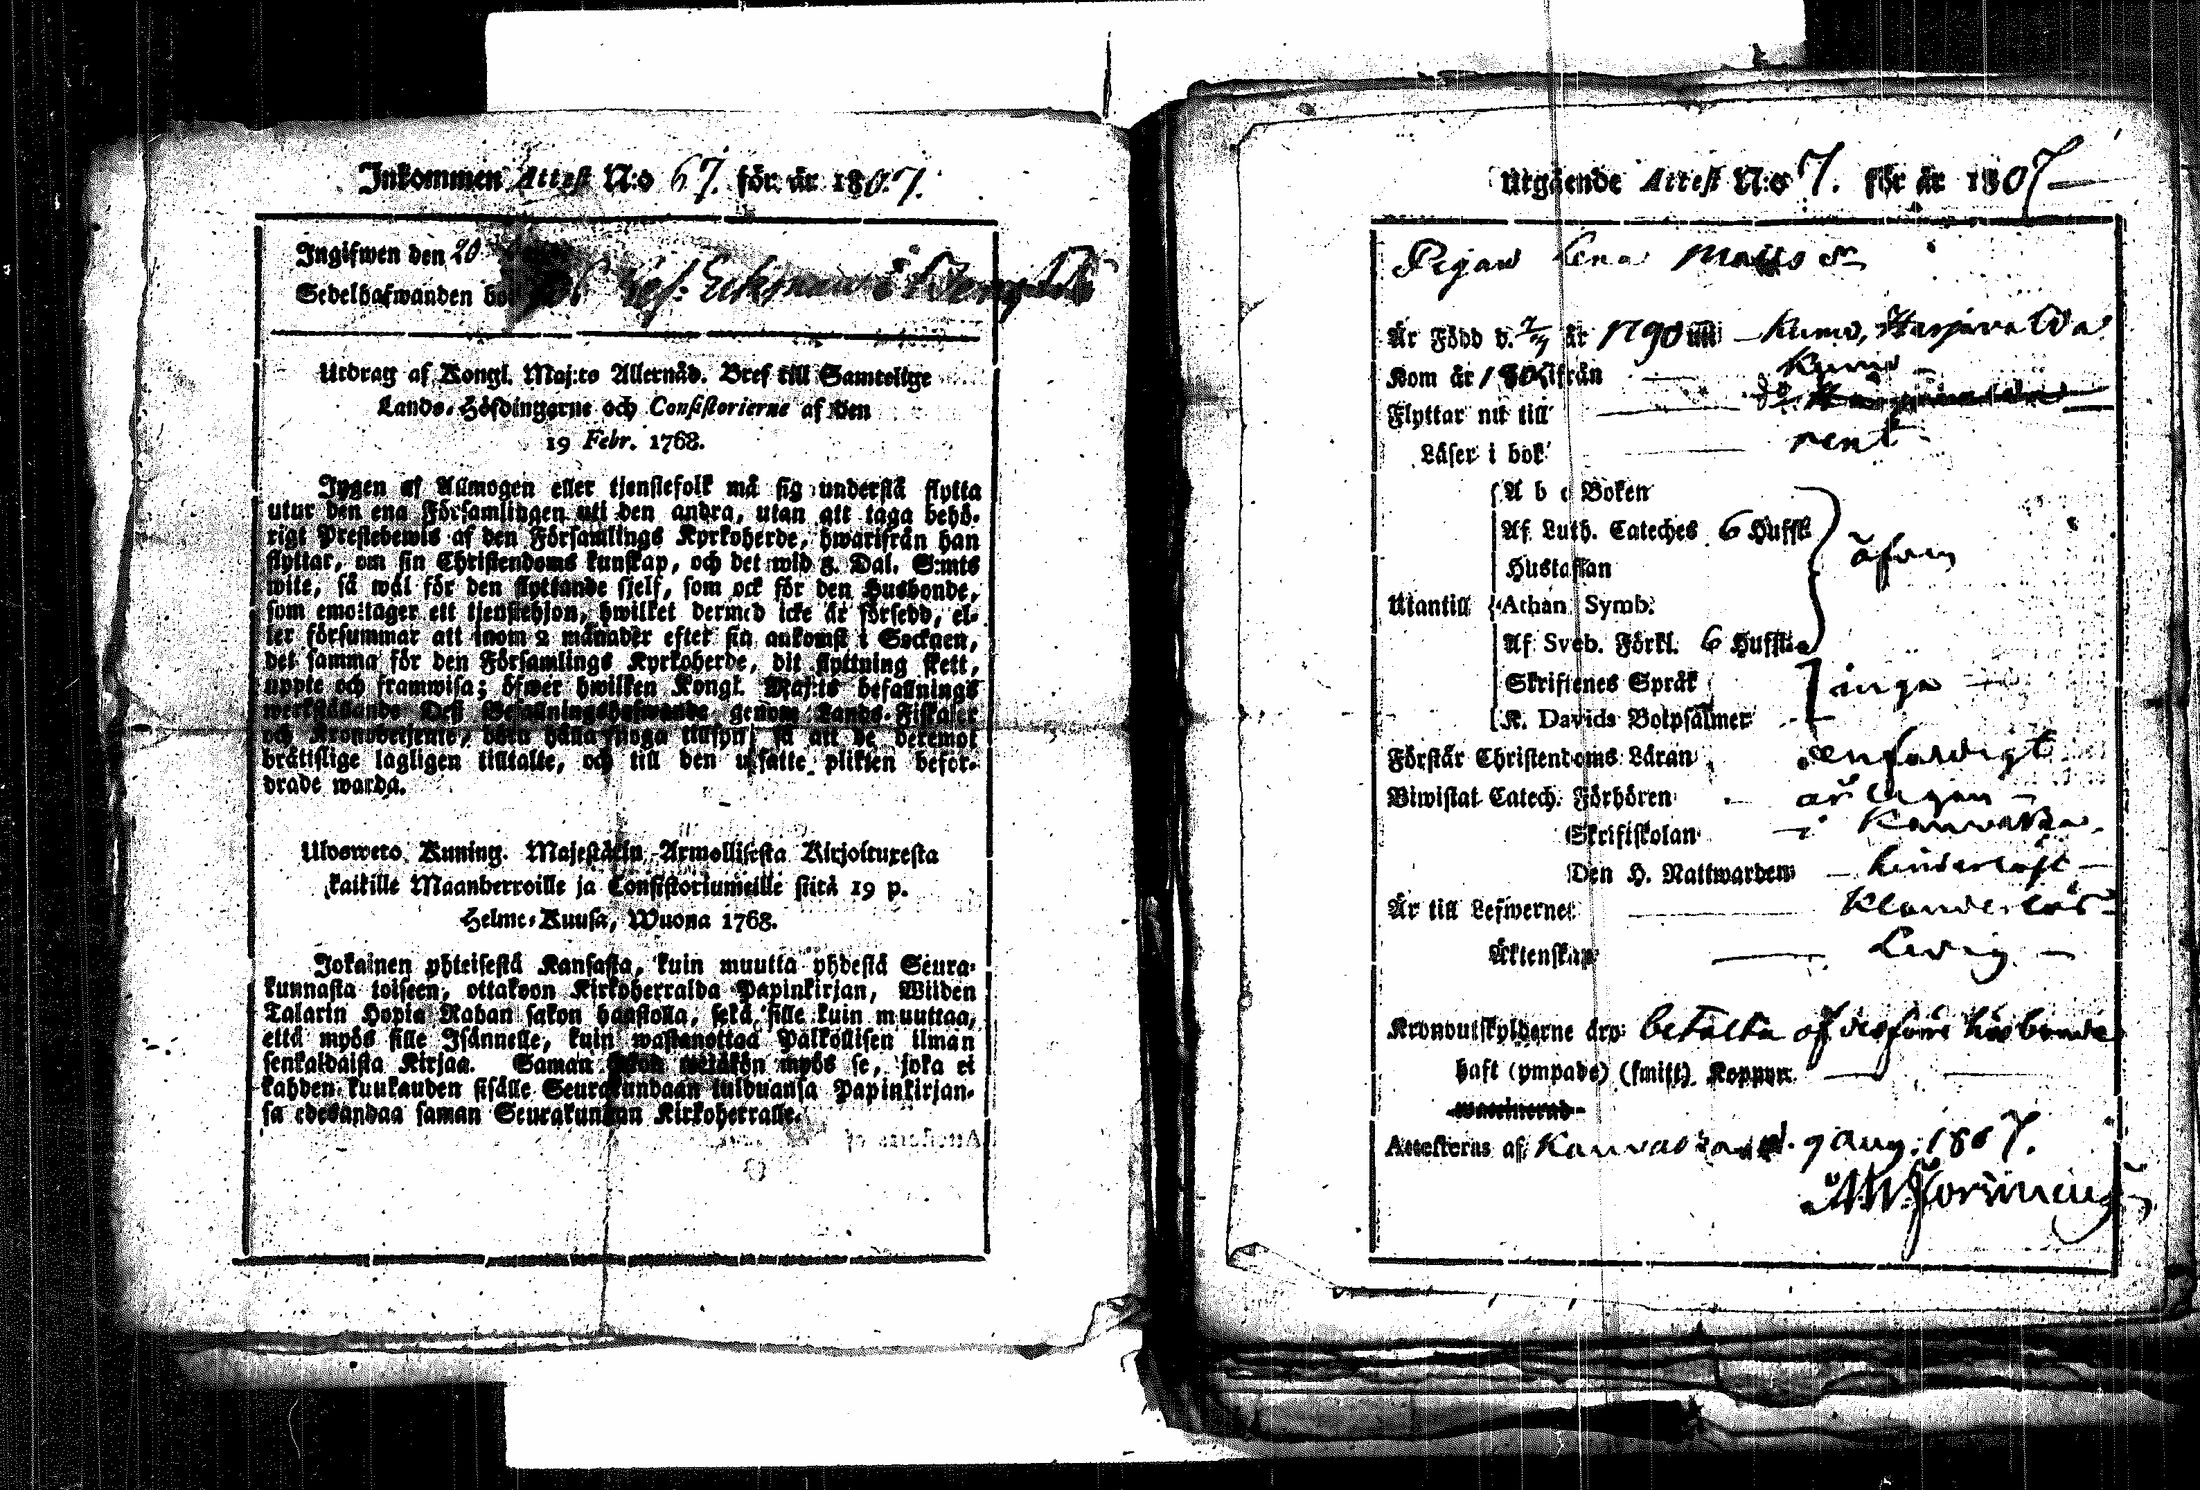 Inkommen Attest N:o 67. för år 1807.
Ingifwen den 20
Sedelhafwanden hos
Utdrag af Kongl. Maj:ts Allernåd. Bref till Samtelige
Lands-Höfdingarne och Consistorierne af den
19 Febr. 1768.
Ingen af Allmogen eller tjenstefolk må sig understå flytta
utur den ena Församlingen uti den andra, utan att taga behö-
rigt Prestebewis af den Församlings Kyrkoherde, hwarifrån han
flyttar, om sin Christendoms kunskap, och det wid 5. Dal. S:mts
wite, så wäl för den flyttande sjelf, som ock för den Husbonde,
som emottager ett tjenstehjon, hwilket dermed icke är försedd, el-
ler försummar att inom 2 månader efter sin ankomst i Socknen,
det samma för den Församlings Kyrkoherde, dit flyttning skett,
uppte och framwisa; öfwer hwilken Kongl. Maj:ts befallnings
werkställande Dess Befallningshafwande genom Lands-Fiskaler
och Kronobetjente, böra hålla noga tillsyn, så att de deremot
brätslige lagligen tilltalte, och till den utsatte plikten befor-
drade warda.
Ulosweto Kuning. Majestätin Armollisesta Kirjoituxesta
kaikille Maanherroille ja Consistoriumeille siitä 19 p.
Helme-Kuusa, Wuona 1768.
Jokainen yhteisestä Kansasta, kuin muutta yhdestä Seura-
kunnasta toiseen, ottakoon Kirkoherralda Papinkirjan, Wiiden
Talarin Hopia Rahan sakon haastolla, sekä sille kuin muuttaa,
että myös sille Isännelle, kuin wastanottaa Palkollisen ilman
senkaldaista Kirjaa. Saman sakon wetäkön myös se, joka ei
kahden kuukauden sisälle Seurakundaan tulduansa Papinkirjan-
sa edesandaa saman Seurakunnan Kirkoherralle.
Utgående Attest N:o 7. för år 1807
Pigan Lena Matts dr
Är Född d. år 1790 uti Kumo, Harjavalda
Kom år ifrån Kumo
Flyttar nu till do
Läser i bok rent
A b c Boken
Af Luth. Cateches 6 Hufst
Hustaflan
Utantill Athan. Symb.
Af Sveb. Förkl. 6 Hufst
Skriftenes Språk
K. Davids Botpsalmer
äfven
inga
Förstår Christendoms Läran enfaldigt
Biwistat Catech. Förhören årligen
Skriftskolan i Kanvatsa
Den H. Nattwarden hinderlöst
Är till Lefwernet Klanderlös
Äktenskap Ledig
Kronoutskylderne äro betalta af desföre husbonde
haft (ympade) (smitt) Koppor.
Attesteras af Kanvatsa d. 9 Aug. 1807.